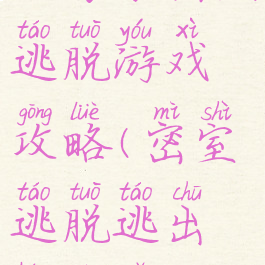 táo tuō yóu xì
逃脱游戏
gōng lüè mì shì
攻略(密室
táo tuō táo chū
逃脱逃出